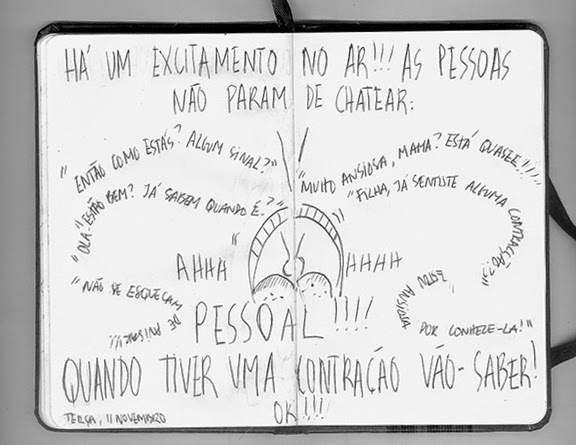 HÁ UM EXCITAMENTO NO AR!!! AS PESSOAS
NÃO PARAM DE CHATEAR:
"ENTÃO COMO ESTÁS? ALGUM SINAL?"
"OLÁ. ESTÃO BEM? JÁ SABEM QUANDO É?"
"NÃO SE ESQUEÇAM
DE AVISAR!!!"
"MUITO ANSIOSA, MAMÃ? ESTÁ QUASEE!!!!"
"FILHA, JÁ SENTISTE ALGUMA CONTRACÇÃO?"
"ESTOU ANSIOSA
POR CONHECE-LA!"
AHHA AHHH
PESSOAL!!!!
QUANDO TIVER UMA CONTRAÇÃO VÃO-SABER!
OK!!!
TERÇA, 11 NOVEMBRO